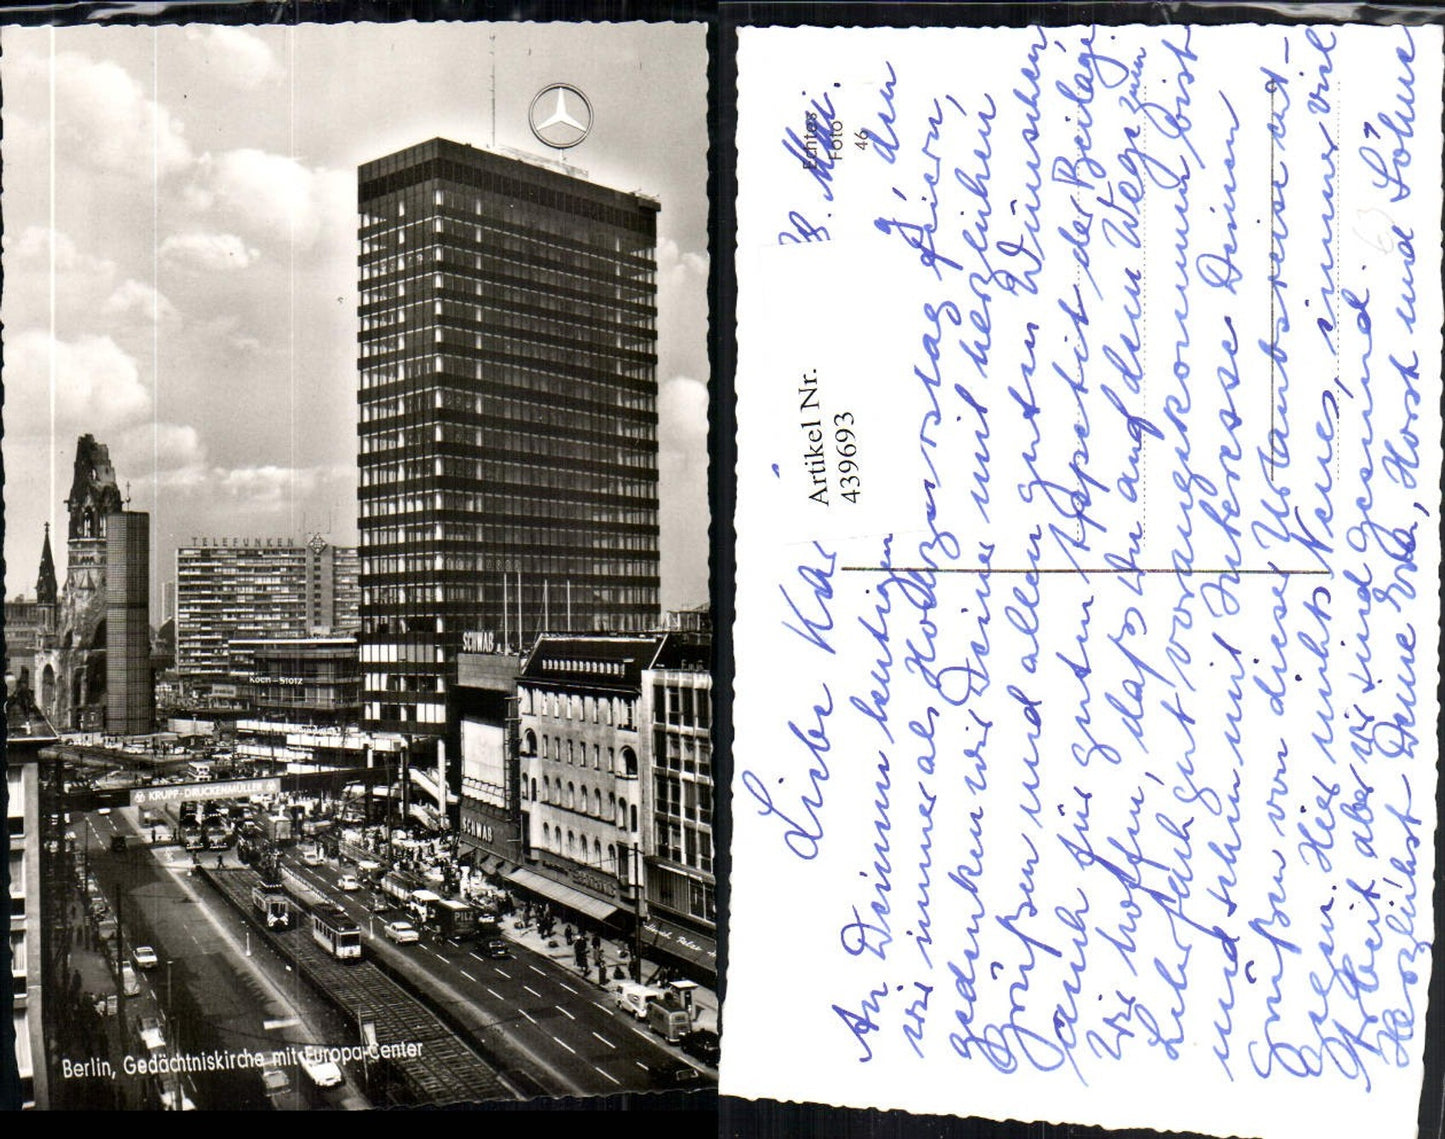 TELEFUNKEN
SCHWAB
Koch-Stotz
KRUPP-DRUCKENMÜLLER
SCHWAB
PILZ
Berlin, Gedächtniskirche mit Europa-Center
Echtes
Foto
46
Artikel Nr.
439693
Liebe
An Deinem heutigen den
wir immer als Hochzeitstag feiern,
gedenken wir Deiner mit herzlichen
Grüßen und allen guten Wünschen
auch für guten Appetit der Beilage.
Wir hoffen, daß Du auf dem Wege zum
gut vorangekommen bist
und sehen mit Interesse Deinen
von dieser Urlaubsreise ent-
gegen. Hier nichts Neues, immer viel
Arbeit aber wir sind gesund.
Herzlichst Deine Horst und Söhne